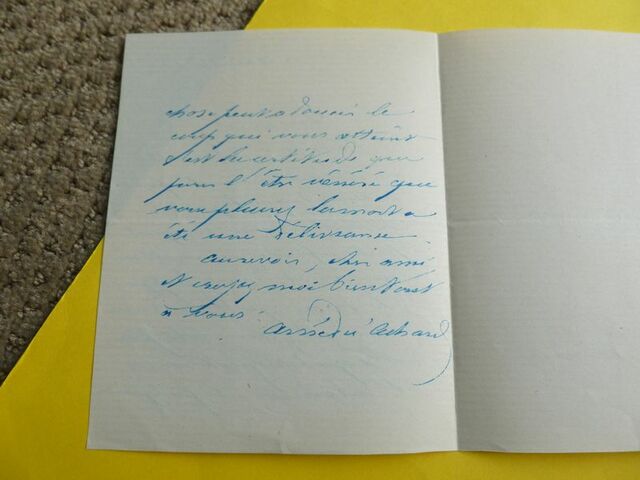 chose peut adoucir le
coup qui vous atteint
c'est la certitude que
pour l'être vénéré que
vous pleurez la mort a
été une délivrance
au revoir, cher ami
et croyez moi bien tout
à vous.
Amédée Achard